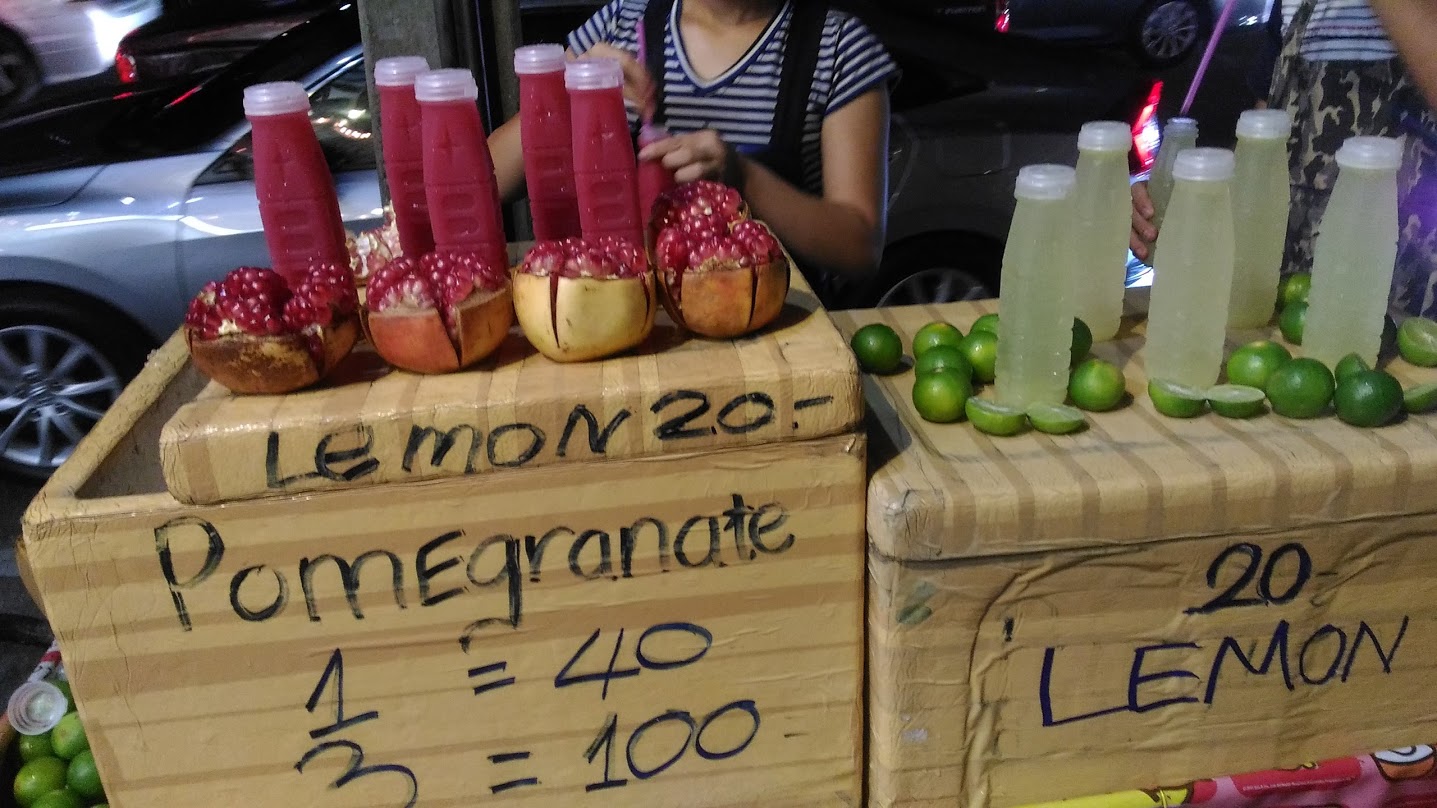 LemoN 20.-
PomEgranate
1 = 40
3 = 100
20-
LEMON